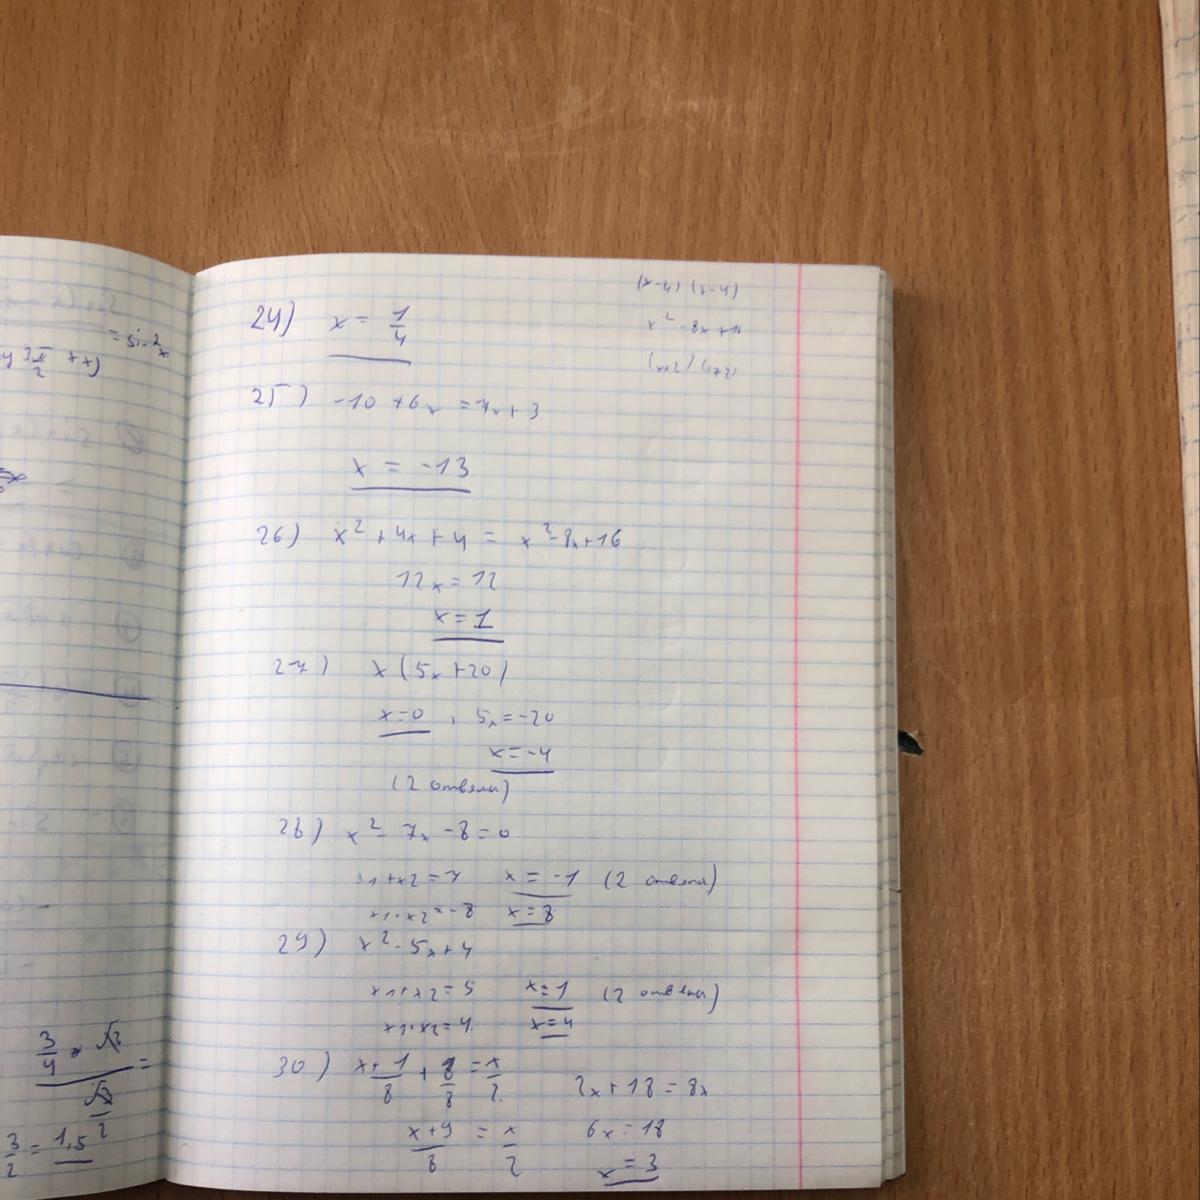 = sin²x
3π/2 + x)
3/4 · √3
=
√3/2
3/2 = 1,5
(x-4) (x-4)
x² - 8x + 16
(x+2) (x+2)
24) x = 1/4
25) -10 + 6x = 7x + 3
x = -13
26) x² + 4x + 4 = x² - 8x + 16
12x = 12
x = 1
27) x (5x + 20)
x = 0 , 5x = -20
x = -4
(2 ответа)
28) x² - 7x - 8 = 0
x1 + x2 = 7 x = -1 (2 ответа)
x1 · x2 = -8 x = 8
29) x² - 5x + 4
x1 + x2 = 5 x = 1 (2 ответа)
x1 · x2 = 4 x = 4
30) x+1/8 + 8/8 = x/2 2x + 18 = 8x
x+9/8 = x/2 6x = 18
x = 3